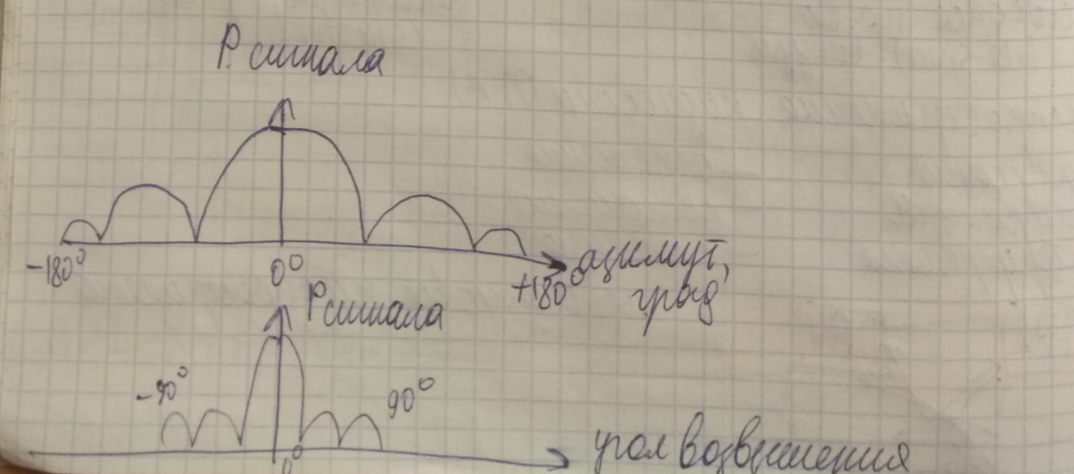 P сигнала
-180° 0° +180° азимут,
град
P сигнала
-90° 90°
0° угол возвышения